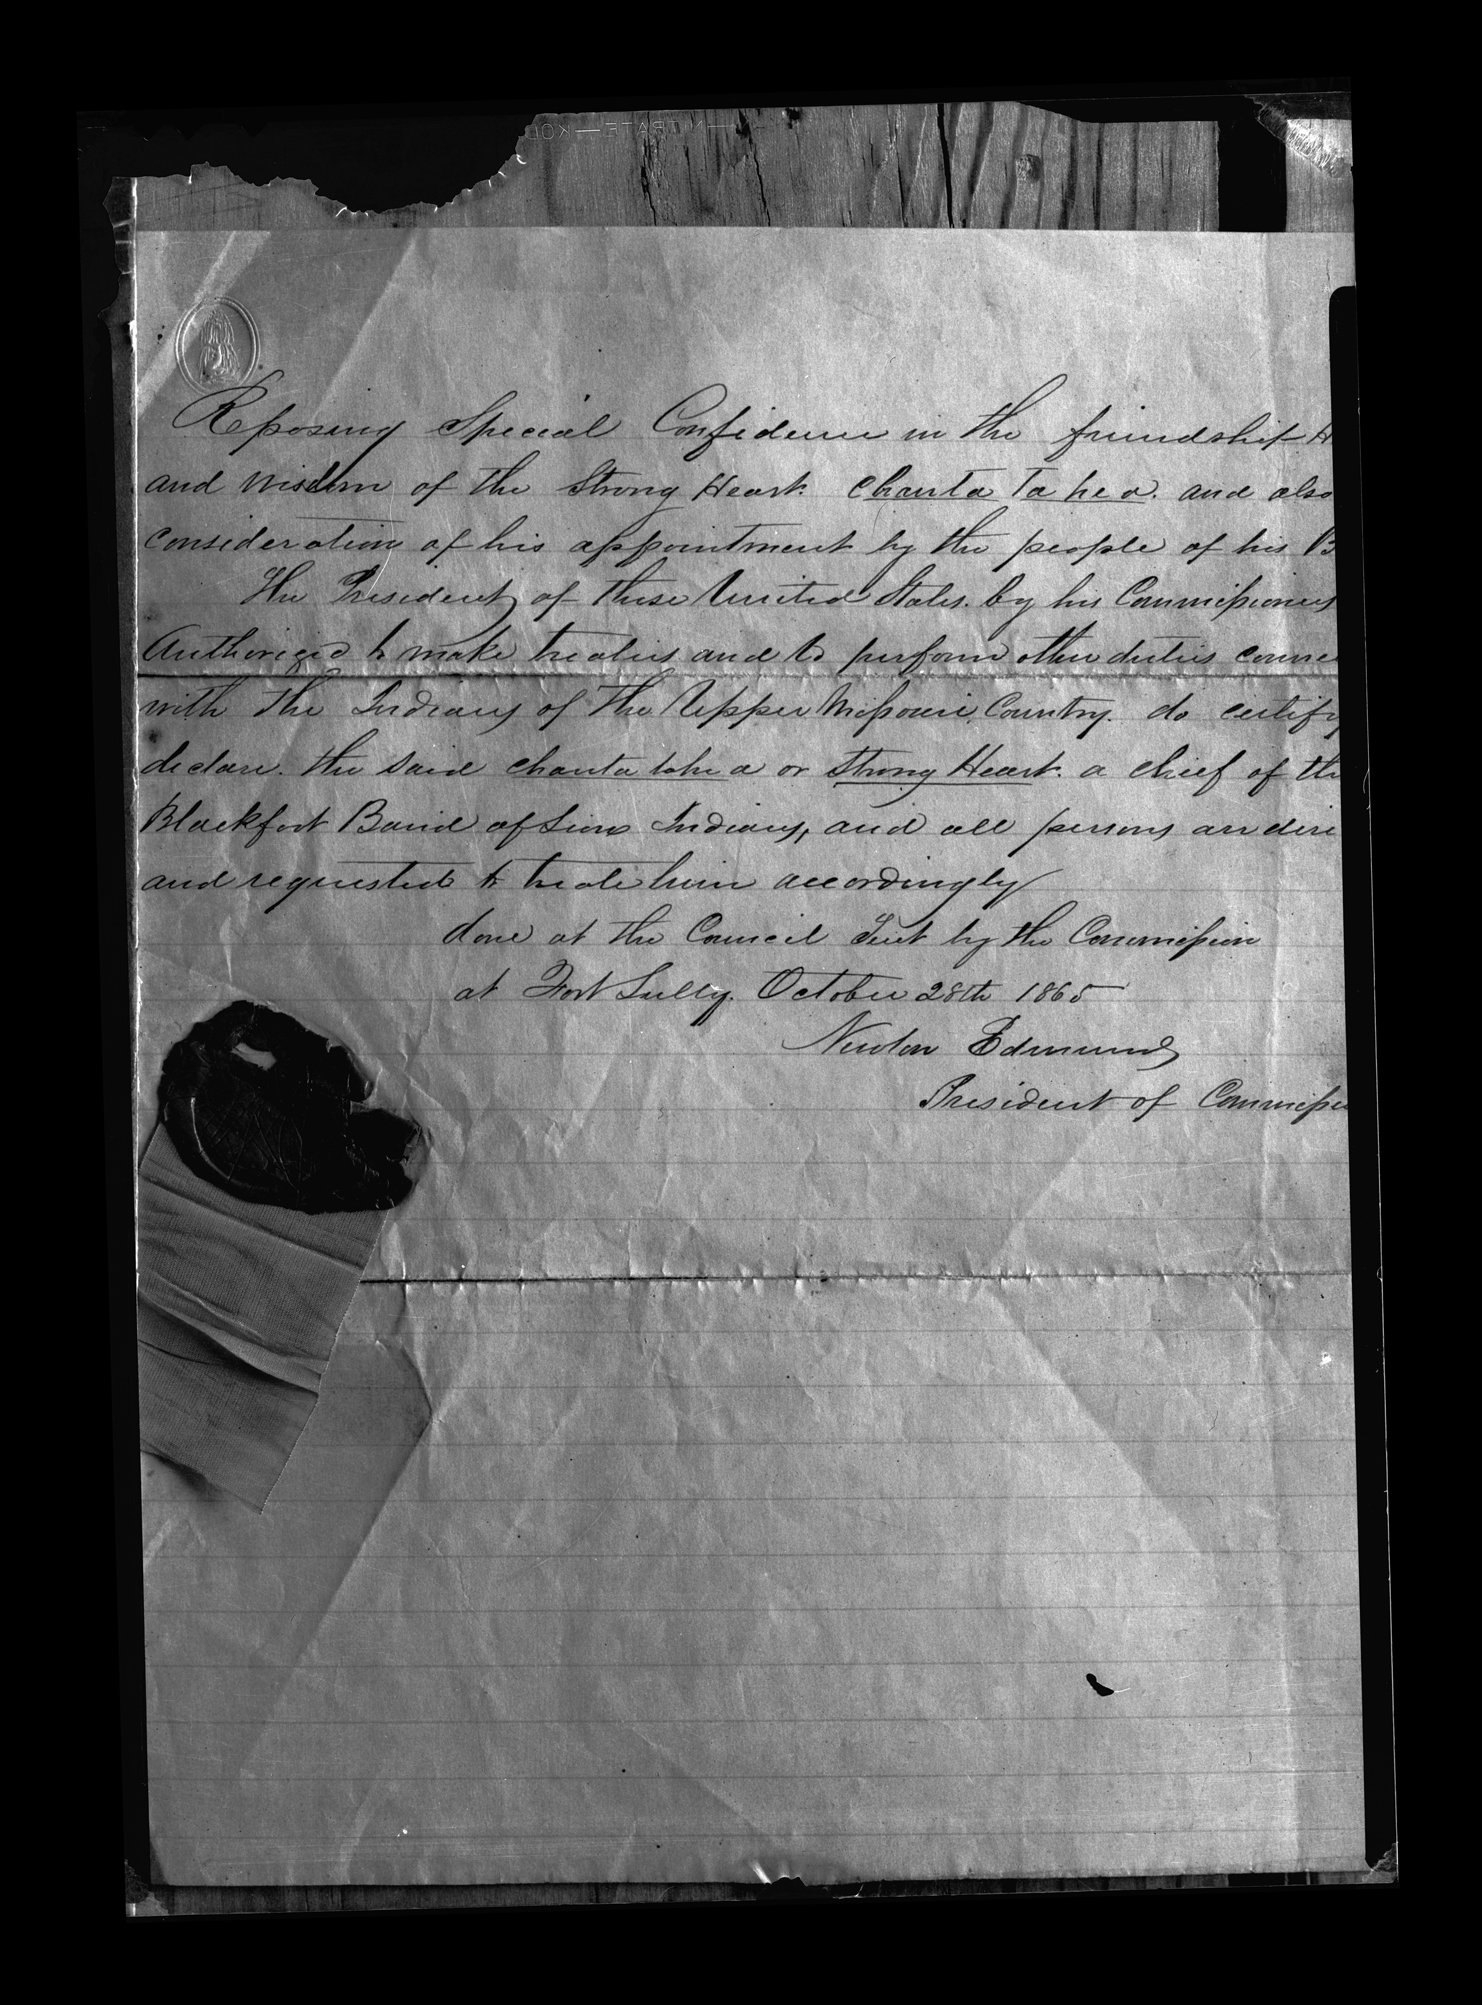 Reposing Special Confidence in the friendship H
and wisdom of the Strong Heart. Chanta Ta he a. and also
consideration of his appointment by the people of his B
The President of these United States. by his Commissioners
Authorized to make treaties and to perform other duties conne
with the Indians of the Upper Missouri Country. do certify
declare. the said chanta take a or Strong Heart. a chief of the
Blackfoot Band of Sioux Indians, and all persons are dire
and requested to treate him accordingly
done at the Council Tent by the Commission
at Fort Sully. October 28th 1865
Newton Edmunds
President of Commission